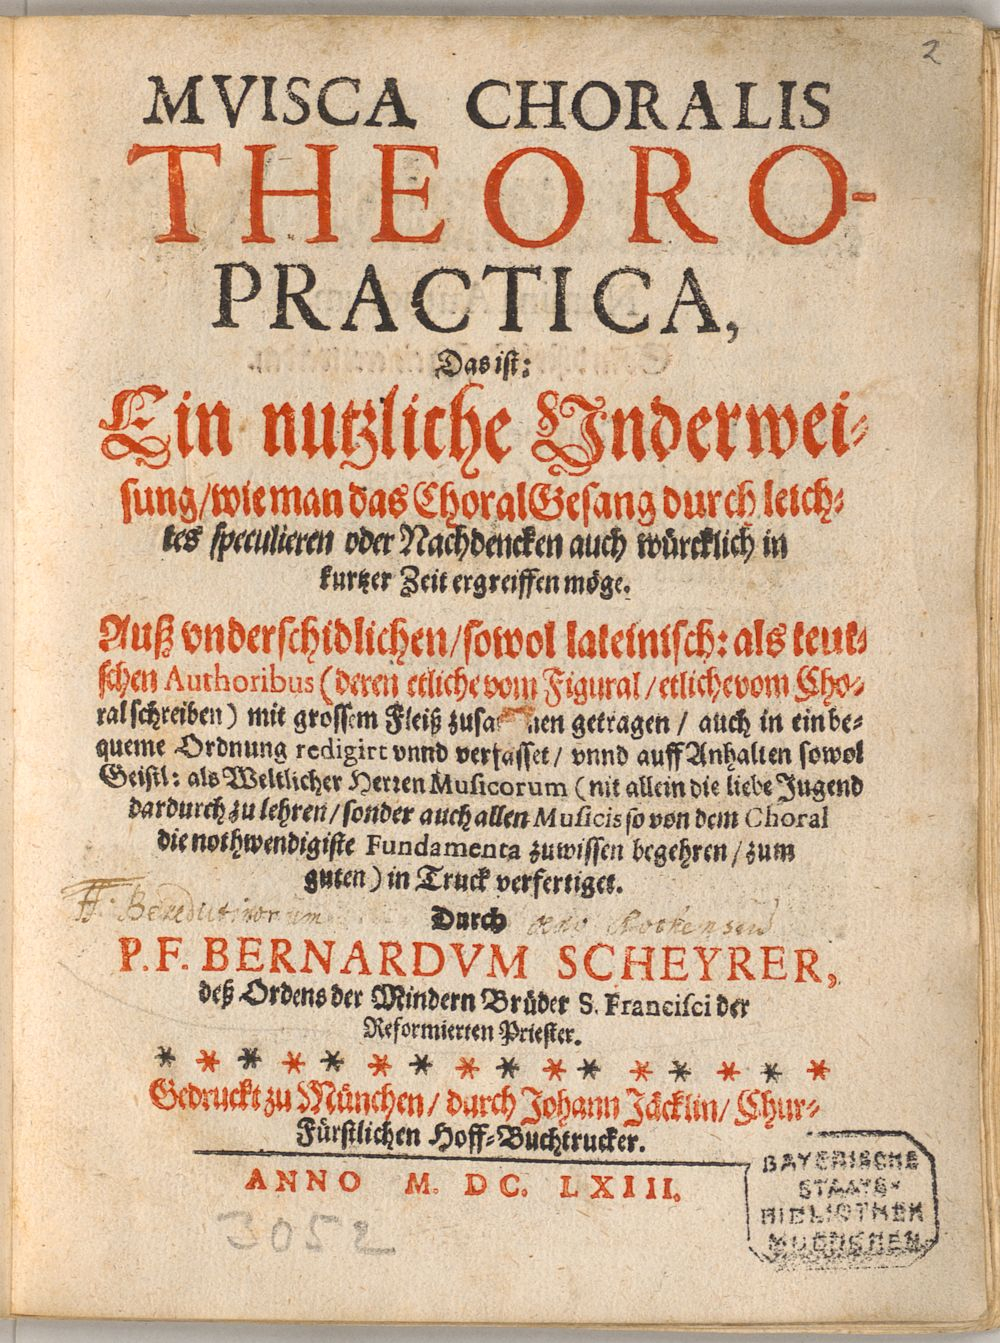 2
MVISCA CHORALIS
THEORO-
PRACTICA,
Das ist:
Ein nutzliche Vnderwei-
sung/wie man das Choral Gesang durch leich-
tes speculieren oder Nachdencken auch würcklich in
kurtzer Zeit ergreiffen möge.
Auß vnderschidlichen/sowol lateinisch: als teut-
schen Authoribus (deren etliche vom Figural/etliche vom Cho-
ral schreiben) mit grossem Fleiß getragen/ auch in ein be-
queme Ordnung redigirt vnnd verfasset/ vnnd auff Anhalten sowol
Geistl: als Weltlicher Herren Musicorum (nit allein die liebe Jugend
dardurch zu lehren/sonder auch allen Musicis so von dem Choral
die nothwendigiste Fundamenta zuwissen begehren/zum
guten) in Truck verfertiget.
Durch
P. F. BERNARDVM SCHEYRER,
deß Ordens der Mindern Brüder S. Francisci der
Reformierten Priester.
* * * * * * * * * * * * * * * *
Gedruckt zu München/ durch Johann Jäcklin/ Chur-
Fürstlichen Hoff-Buchtrucker.
ANNO M. DC. LXIII.
BAYERISCHE
STAATS-
BIBLIOTHEK
MUENCHEN
3052